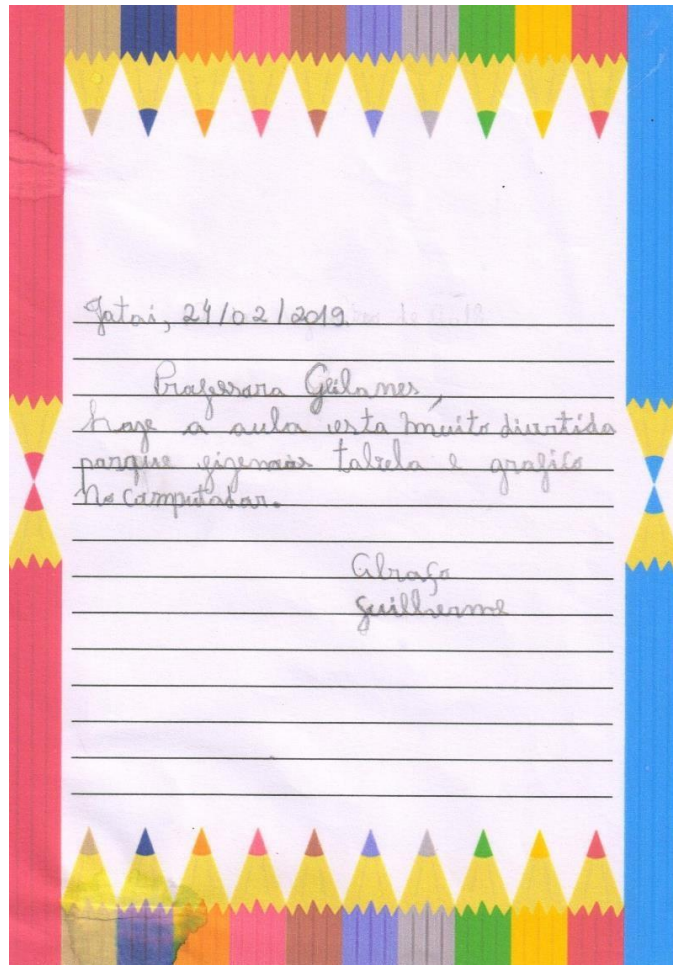 Jatai, 24/02/2019
Professora Geilanes,
hoje a aula esta muito divertida
porque fizemos tabela e grafico
no computador.
Abraço
Guilherme